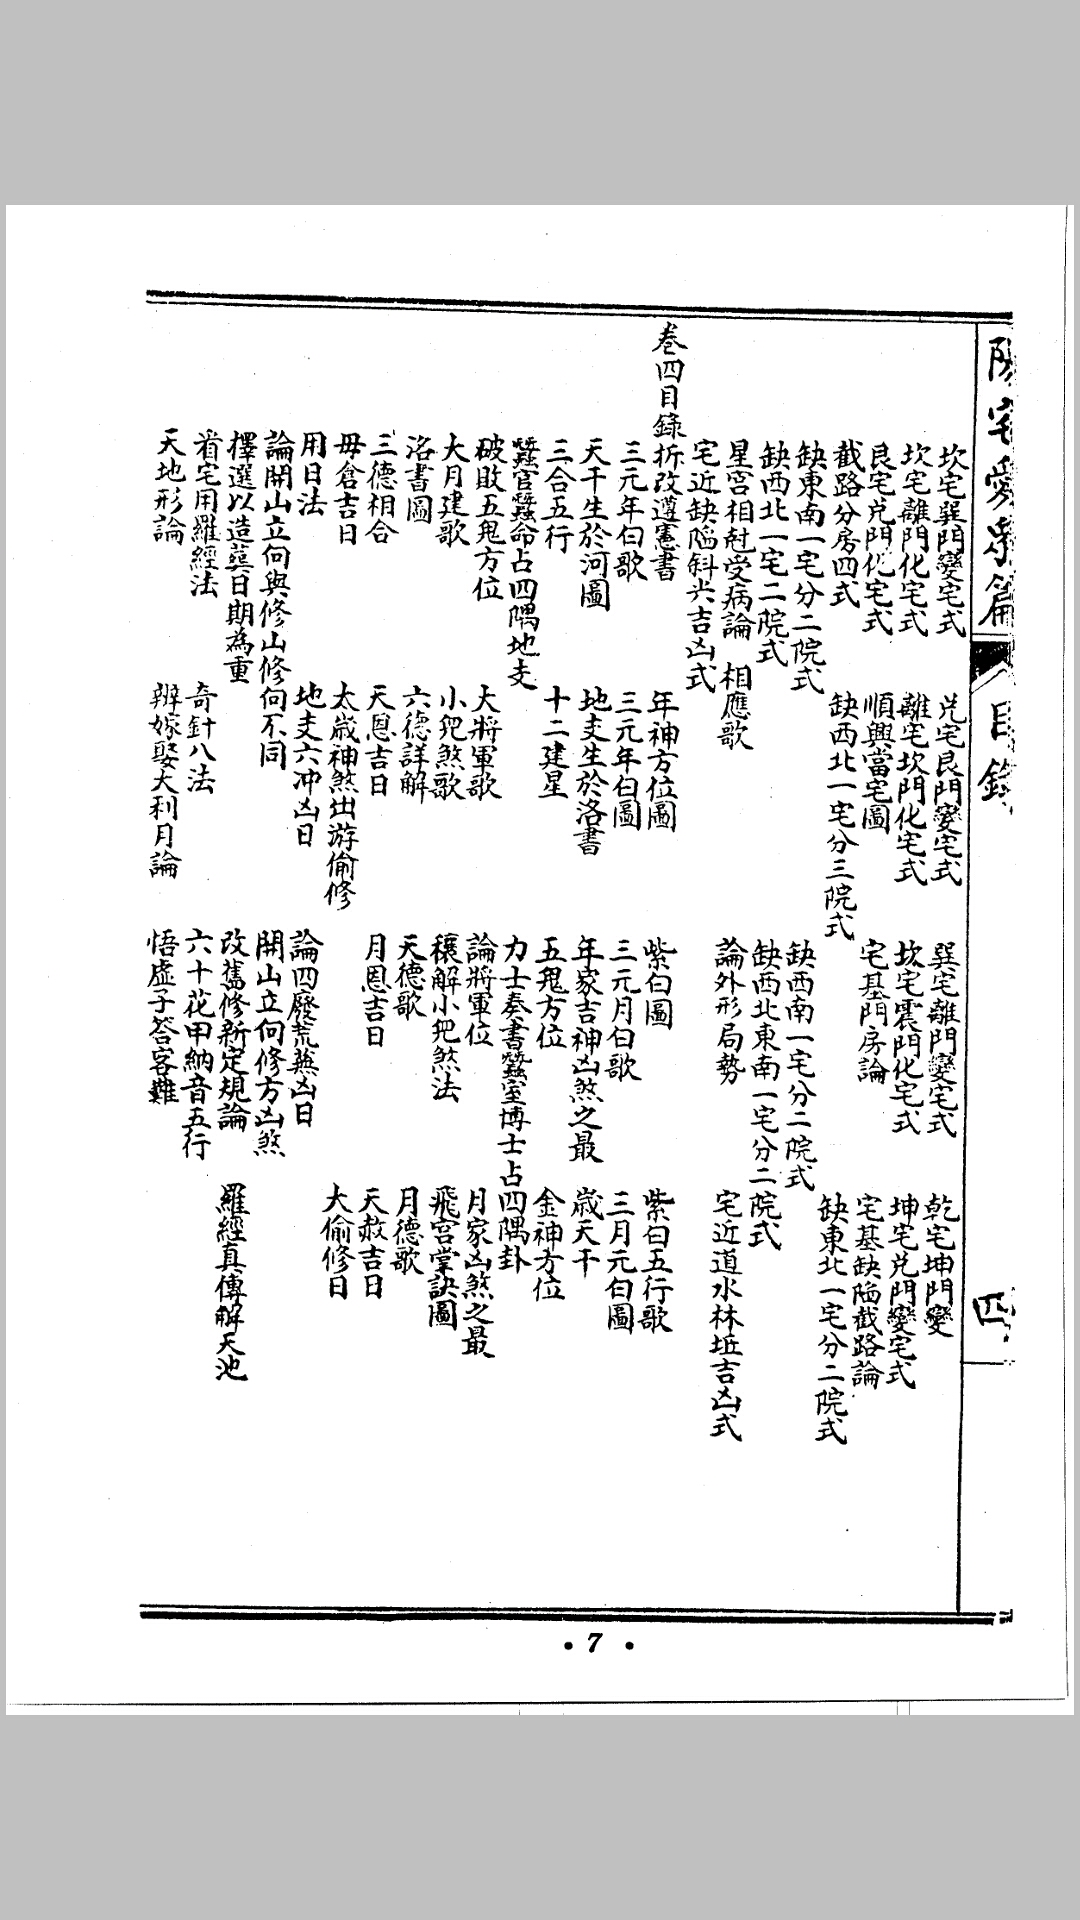 陽宅愛眾篇 目錄 四
坎宅巽門變宅式 兌宅艮門變宅式 巽宅離門變宅式 乾宅坤門變
坎宅離門化宅式 離宅坎門化宅式 坎宅震門化宅式 坤宅兌門變宅式
艮宅兌門化宅式 順興當宅圖 宅基門房論 宅基缺陷截路論
截路分房四式 缺西北一宅分三院式 缺東北一宅分二院式
缺東南一宅分二院式 缺西南一宅分二院式
缺西北一宅二院式 缺西北東南一宅分二院式
星宮相尅受病論 相應歌 論外形局勢 宅近道水林坵吉凶式
宅近缺陷斜尖吉凶式
卷四目錄
折改遵憲書 年神方位圖 紫白圖 紫白五行歌
三元年白歌 三元年白圖 三元月白歌 三月元白圖
天干生於河圖 地支生於洛書 年家吉神凶煞之最 歲天干
三合五行 十二建星 五鬼方位 金神方位
蠶官蠶命占四隅地支 力士奏書蠶室博士占四隅卦
破敗五鬼方位 大將軍歌 論將軍位 月家凶煞之最
大月建歌 小兒煞歌 穰解小兒煞法 飛宮掌訣圖
洛書圖 六德詳解 天德歌 月德歌
三德相合 天恩吉日 月恩吉日 天赦吉日
毋倉吉日 太歲神煞出游偷修 大偷修日
用日法 地支六冲凶日 論四廢荒蕪凶日
論開山立向與修山修向不同 開山立向修方凶煞
擇選以造葬日期為重 改舊修新定規論 羅經真傳解天池
看宅用羅經法 奇針八法 六十花甲納音五行
天地形論 辨嫁娶大利月論 悟虛子答客難
• 7 •